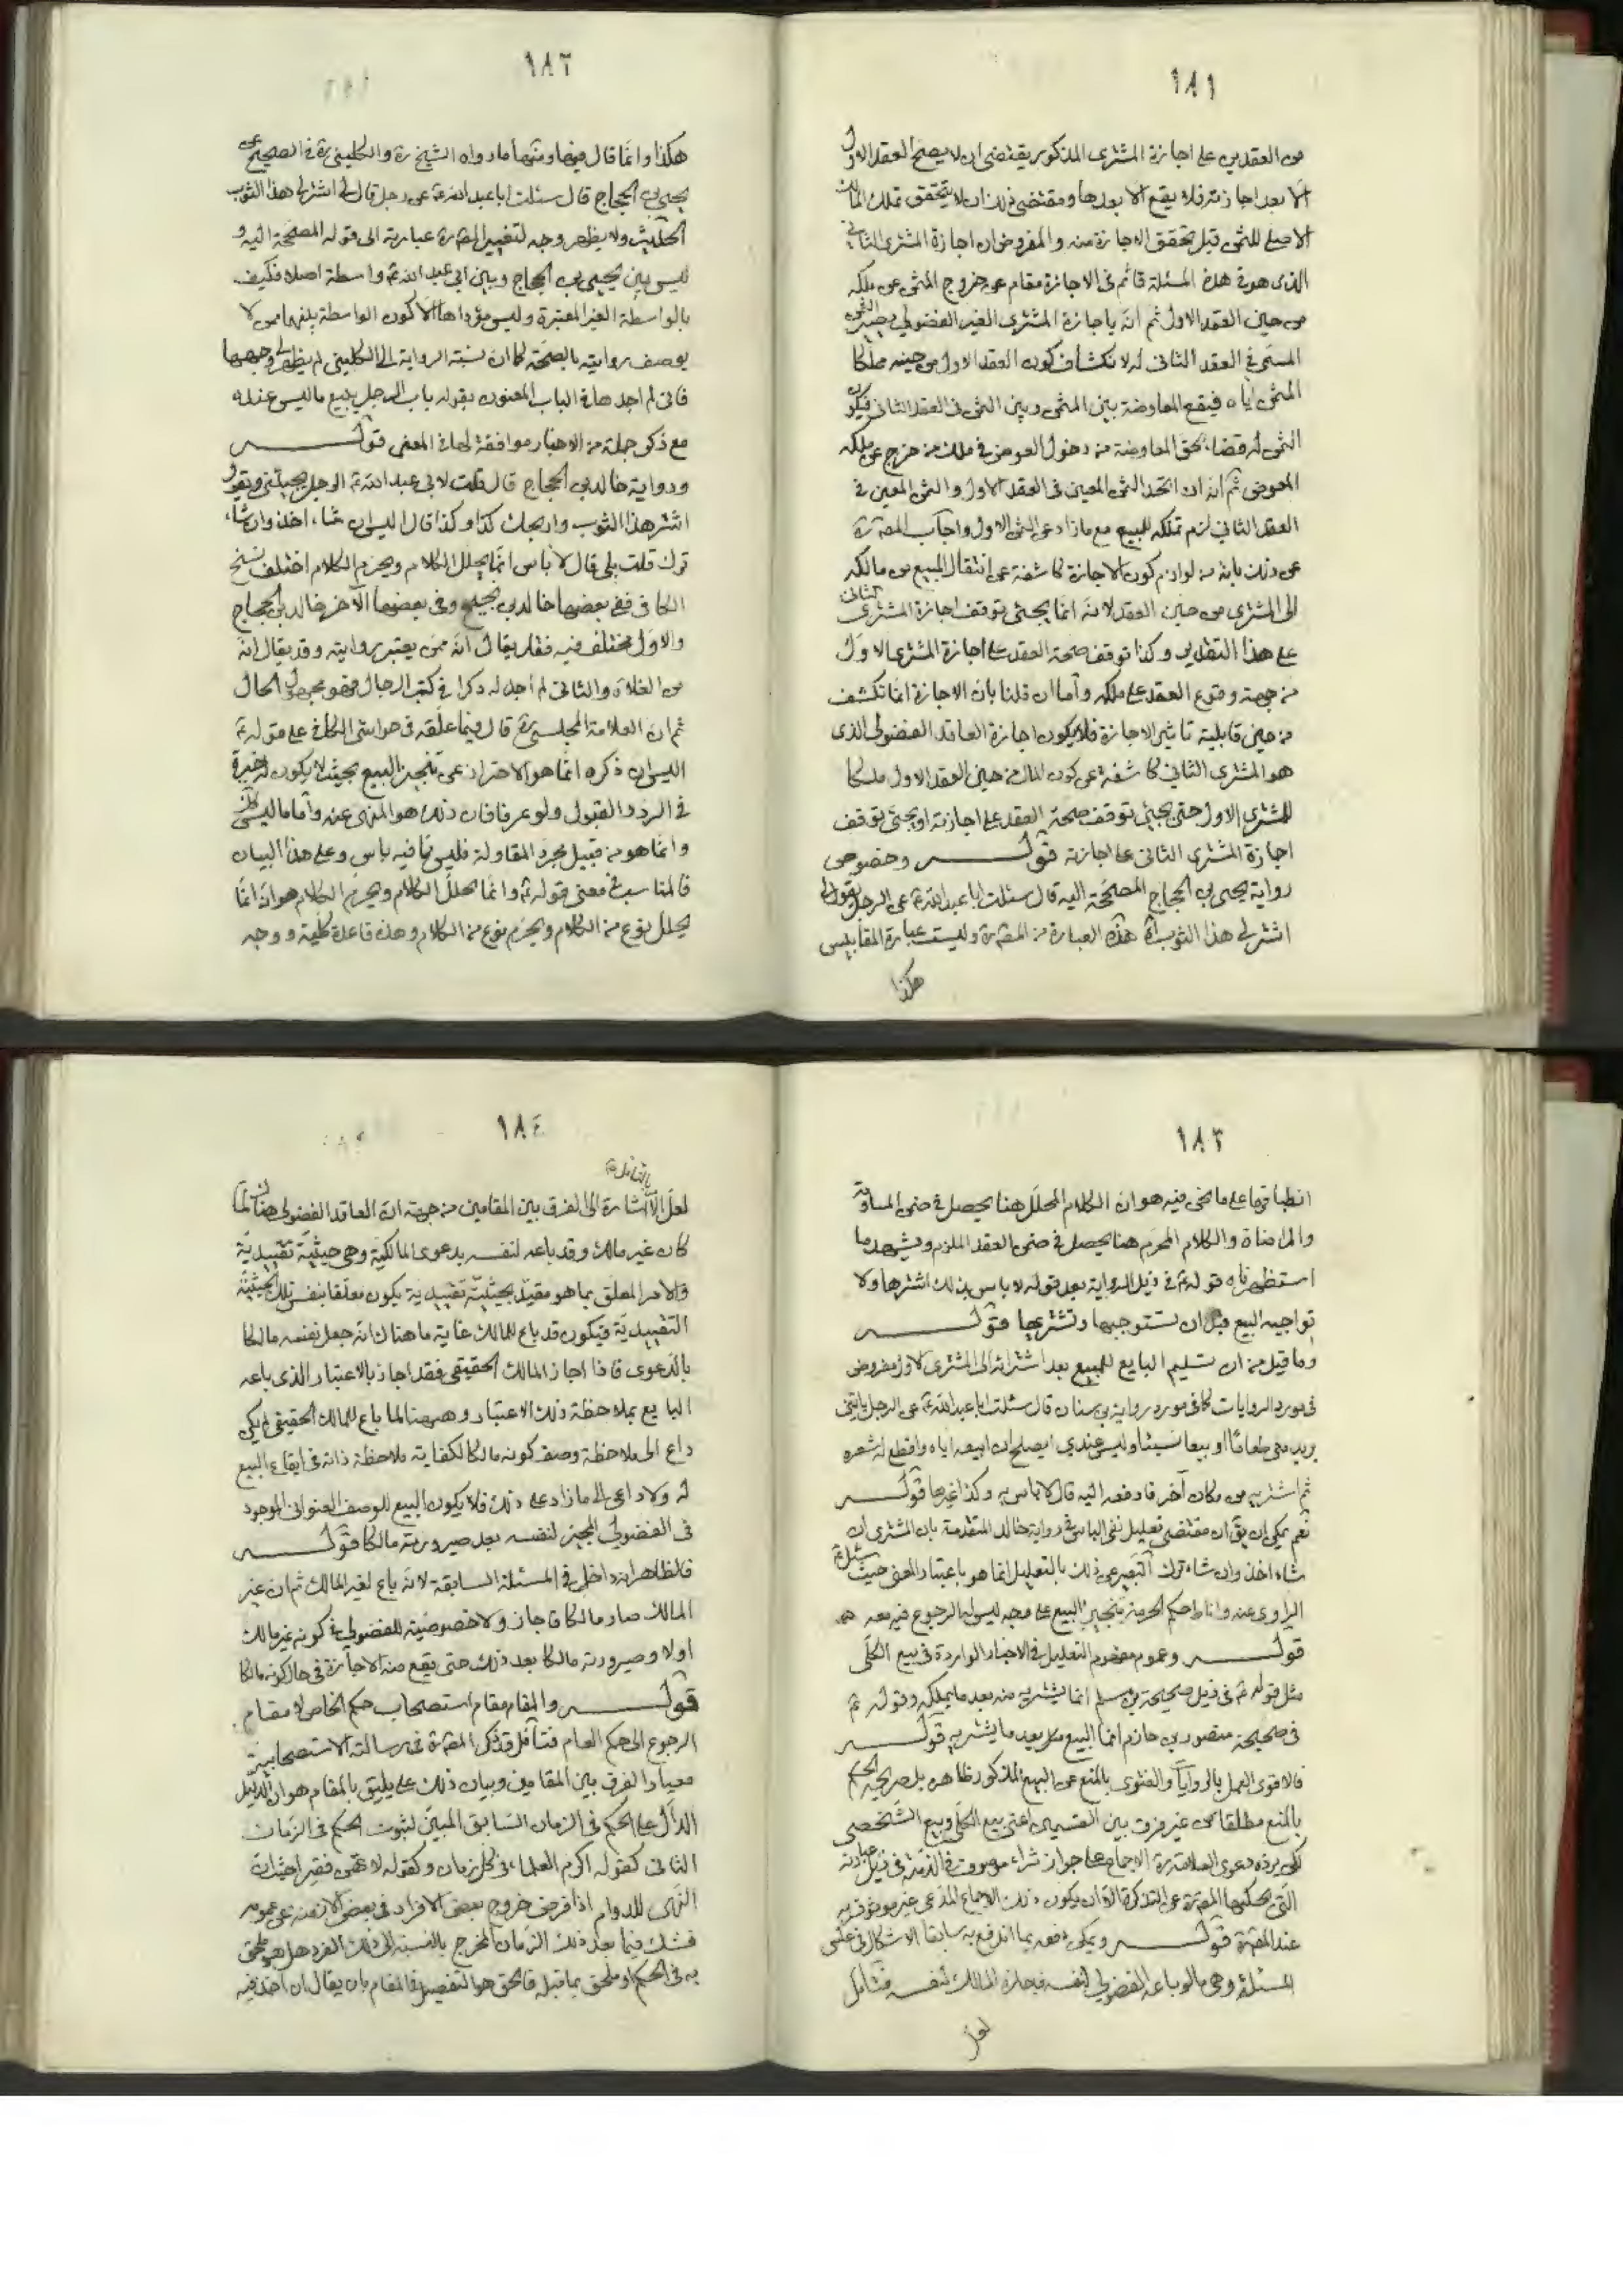 ١٨١
من العقدين على اجازة المشترى المذكور يقتضى ان لا يصح العقد الاول
الا بعد اجازته فلا يقع الا بعدها ومقتضى ذلك ان لا يتحقق تملك المالك
الاصلى للثمن قبل تحقق الاجازة منه والمفروض ان اجازة المشترى الثانى
الذى هو فى هذه المسئلة قائم فى الاجازة مقام عن خروج المثمن عن ملكه
من حين العقد الاول ثم انه باجازة المشترى الغير الفضولى يصير الثمن
المسمى فى العقد الثانى له لانكشاف كون العقد الاول من حينه مملكا
المثمن اياه فيقع المعاوضة بين المثمن وبين الثمن فى العقد الثانى فيكون
الثمن له قضاء لحق المعاوضة من دخول العوض فى ملك من خرج عن ملكه
المعوض ثم انه ان اتحد الثمن المعين فى العقد الاول والثمن المعين فى
العقد الثانى لزم تملكه للمبيع مع ما زاد عن الثمن الاول واجاب المصنف ره
عن ذلك بانه من لوازم كون الاجازة كاشفة عن انتقال المبيع من مالكه
الى المشترى من حين العقد لانه انما يجئ توقف اجازة المشترى الثانى
على هذا التقدير وكذا توقف صحة العقد على اجازة المشترى الاول
من جهة وقوع العقد على ملكه واما ان قلنا بان الاجازة انما تكشف
من حين قابلية تاثير الاجازة فلا يكون اجازة العاقد الفضولى الذى
هو المشترى الثانى كاشفة عن كون المال من حين العقد الاول ملكا
للمشترى الاول حتى يجئ توقف صحة العقد على اجازته او يجئ توقف
اجازة المشترى الثانى على اجازته قوله وخصوص
رواية يحيى بن الحجاج المصححة اليه قال سئلت ابا عبد الله ع عن الرجل يقول لى
اشتر لى هذا الثوب آه هذه العبارة من المصنف ره وليست عبارة المقابيس
هكذا
١٨٢
هكذا وانما قال فيها ومنها ما رواه الشيخ ره والكلينى ره فى الصحيح عن
يحيى بن الحجاج قال سئلت ابا عبد الله ع عن رجل قال لى اشتر لى هذا الثوب
الحديث ولا يظهر وجه لتغيير المصنف ره عبارته الى قوله المصححة اليه و
ليس بين يحيى بن الحجاج وبين ابى عبد الله ع واسطة اصلا فكيف
بالواسطة الغير المعتبرة وليس مؤداها الا كون الواسطة بينهما ممن لا
يوصف روايته بالصحة كما ان نسبة الرواية الى الكلينى لم يظهر لى وجهها
فانى لم اجدها فى الباب المعنون بقوله باب الرجل يبيع ما ليس عنده
مع ذكر جملة من الاخبار موافقة لها فى المعنى قوله
ورواية خالد بن الحجاج قال قلت لابى عبد الله ع الرجل يجيئنى ويقول
اشتر هذا الثوب واربحك كذا وكذا قال اليس ان شاء اخذ وان شاء
ترك قلت بلى قال لا باس انما يحلل الكلام ويحرم الكلام اختلف نسخ
الكافى ففى بعضها خالد بن نجيح وفى بعضها الآخر خالد بن الحجاج
والاول مختلف فيه فقد يقال انه ممن يعتبر روايته وقد يقال انه
من الغلاة والثانى لم اجد له ذكرا فى كتب الرجال فهو مجهول الحال
ثم ان العلامة المجلسى ره قال فيما علقه فى حواشى الكافى على قوله ع
اليس ان ذكره انما هو الاحتراز عن تنجيز البيع بحيث لا يكون له خيرة
فى الرد والقبول ولو عرفا فان ذلك هو المنهى عنه واما ما ليس كذلك
وانما هو من قبيل مجرد المقاولة فليس فيه باس وعلى هذا البيان
فالمناسب فى معنى قوله ع وانما يحلل الكلام ويحرم الكلام هو انه انما
يحلل نوع من الكلام ويحرم نوع من الكلام وهذه قاعدة كلية ووجه
١٨٣
انطباقها على ما نحن فيه هو ان الكلام المحلل هنا يحصل فى ضمن المساومة
والمراضاة والكلام المحرم هنا يحصل فى ضمن العقد الملزم ويشهد بما
استظهرناه قوله ع فى ذيل الرواية بعد قوله لا باس بذلك اشترها ولا
تواجبه البيع قبل ان تستوجبها وتشتريها قوله
وما قيل من ان تسليم البايع للمبيع بعد اشترائه الى المشترى الاول مفروض
فى مورد الروايات كما فى مورد رواية بن سنان قال سئلت ابا عبد الله ع عن الرجل ياتينى
يريد منى طعاما او بيعا نسيئا وليس عندى ايصلح ان ابيعه اياه واقطع له شعره
ثم اشتريه من مكان آخر فادفعه اليه قال لا باس به وكذا غيرها قوله
نعم يمكن ان يق ان مقتضى تعليل نفى الباس فى رواية خالد المتقدمة بان المشترى ان
شاء اخذ وان شاء ترك التعبير عن ذلك بالتعليل انما هو باعتبار المعنى حيث سئل ع
الراوى عنه واناط حكم الحرمة بتنجيز البيع على وجه ليس له الرجوع فيه معه
قوله وعموم مفهوم التعليل فى الاخبار الواردة فى بيع الكلى
مثل قوله ع فى ذيل صحيحة بن مسلم انما يشتريه منه بعد ما يملكه وقوله ع
فى صحيحة منصور بن حازم انما البيع بعد ما يشتريه قوله
فالاقوى العمل بالروايات والفتوى بالمنع عن البيع المذكور ظاهره بل صريحه الحكم
بالمنع مطلقا من غير فرق بين القسمين اعنى بيع الكلى وبيع الشخصى
لكن يرده دعوى العلامة ره الاجماع على جواز شراء موصوف فى الذمة فى ذيل عبارته
التى حكيها المصنف ره عن التذكرة الا ان يكون ذلك الاجماع المدعى غير موثوق به
عند المصنف ره قوله ويمكن دفعه بما اندفع به سابقا الاشكال فى عكس
المسئلة وهى ما لو باعه الفضولى لنفسه فاجازه المالك لنفسه فتامل
لعل
١٨٤
لعل الامر بالتامل ره اشارة الى الفرق بين المقامين من جهة ان العاقد الفضولى هناك لما
كان غير مالك وقد باعه لنفسه بدعوى المالكية وهى حيثية تقييدية
والامر المعلق بما هو مقيد بحيثية تقييدية يكون معلقا بنفس تلك الحيثية
التقييدية فيكون قد باع للمالك غاية ما هناك انه جعل نفسه مالكا
بالدعوى فاذا اجاز المالك الحقيقى فقد اجاز بالاعتبار الذى باعه
البايع بملاحظة ذلك الاعتبار وههنا لما باع للمالك الحقيقى لم يكن
داع الى ملاحظة وصف كونه مالكا لكفاية ملاحظة ذاته فى ايقاع البيع
له ولا داعى الى ما زاد على ذلك فلا يكون البيع للوصف العنوانى الموجود
فى الفضولى المجيز لنفسه بعد صيرورته مالكا قوله
فالظاهر انه داخل فى المسئلة السابقة لانه باع لغير المالك ثم ان غير
المالك صار مالكا فاجاز ولا خصوصية للفضولى فى كونه غير مالك
اولا وصيرورته مالكا بعد ذلك حتى يقع منه الاجازة فى حال كونه مالكا
قوله والمقام مقام استصحاب حكم الخاص لا مقام
الرجوع الى حكم العام فتامل قد ذكر المصنف ره فى رسالته الاستصحابية
معيار الفرق بين المقامين وبيان ذلك على ما يليق بالمقام هو ان الدليل
الدال على الحكم فى الزمان السابق المبين لثبوت الحكم فى الزمان
الثانى كقوله اكرم العلماء فى كل زمان وكقوله لا تهن فقيرا حيث ان
النهى للدوام اذا فرض خروج بعض الافراد فى بعض الازمنة عن عمومه
فشك فيما بعد ذلك الزمان المخرج بالنسبة الى ذلك الفرد هل هو ملحق
به فى الحكم او ملحق بما قبله فالحق هو التفصيل فى المقام بان يقال ان اخذ فيه